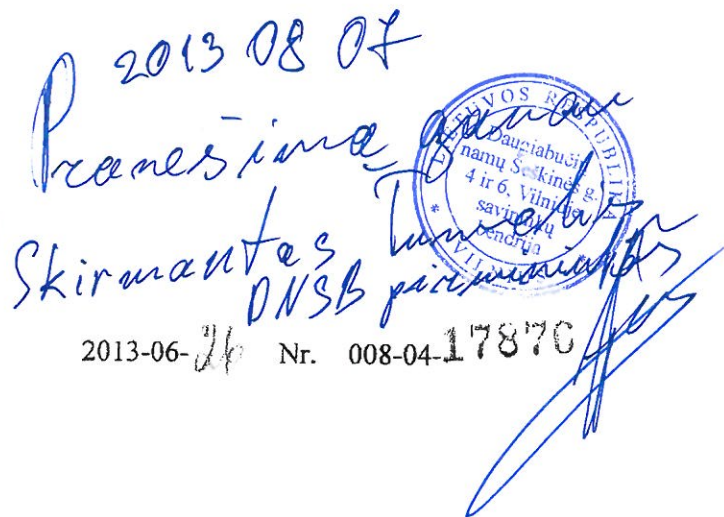 2013 08 07
Pranešimą gavau
Skirmantas
DNSB pirmininkas
LIETUVOS RESPUBLIKA
Daugiabučių
namų Šeškinės g.
4 ir 6, Vilniuje
savininkų
bendrija
2013-06-26 Nr. 008-04-17870